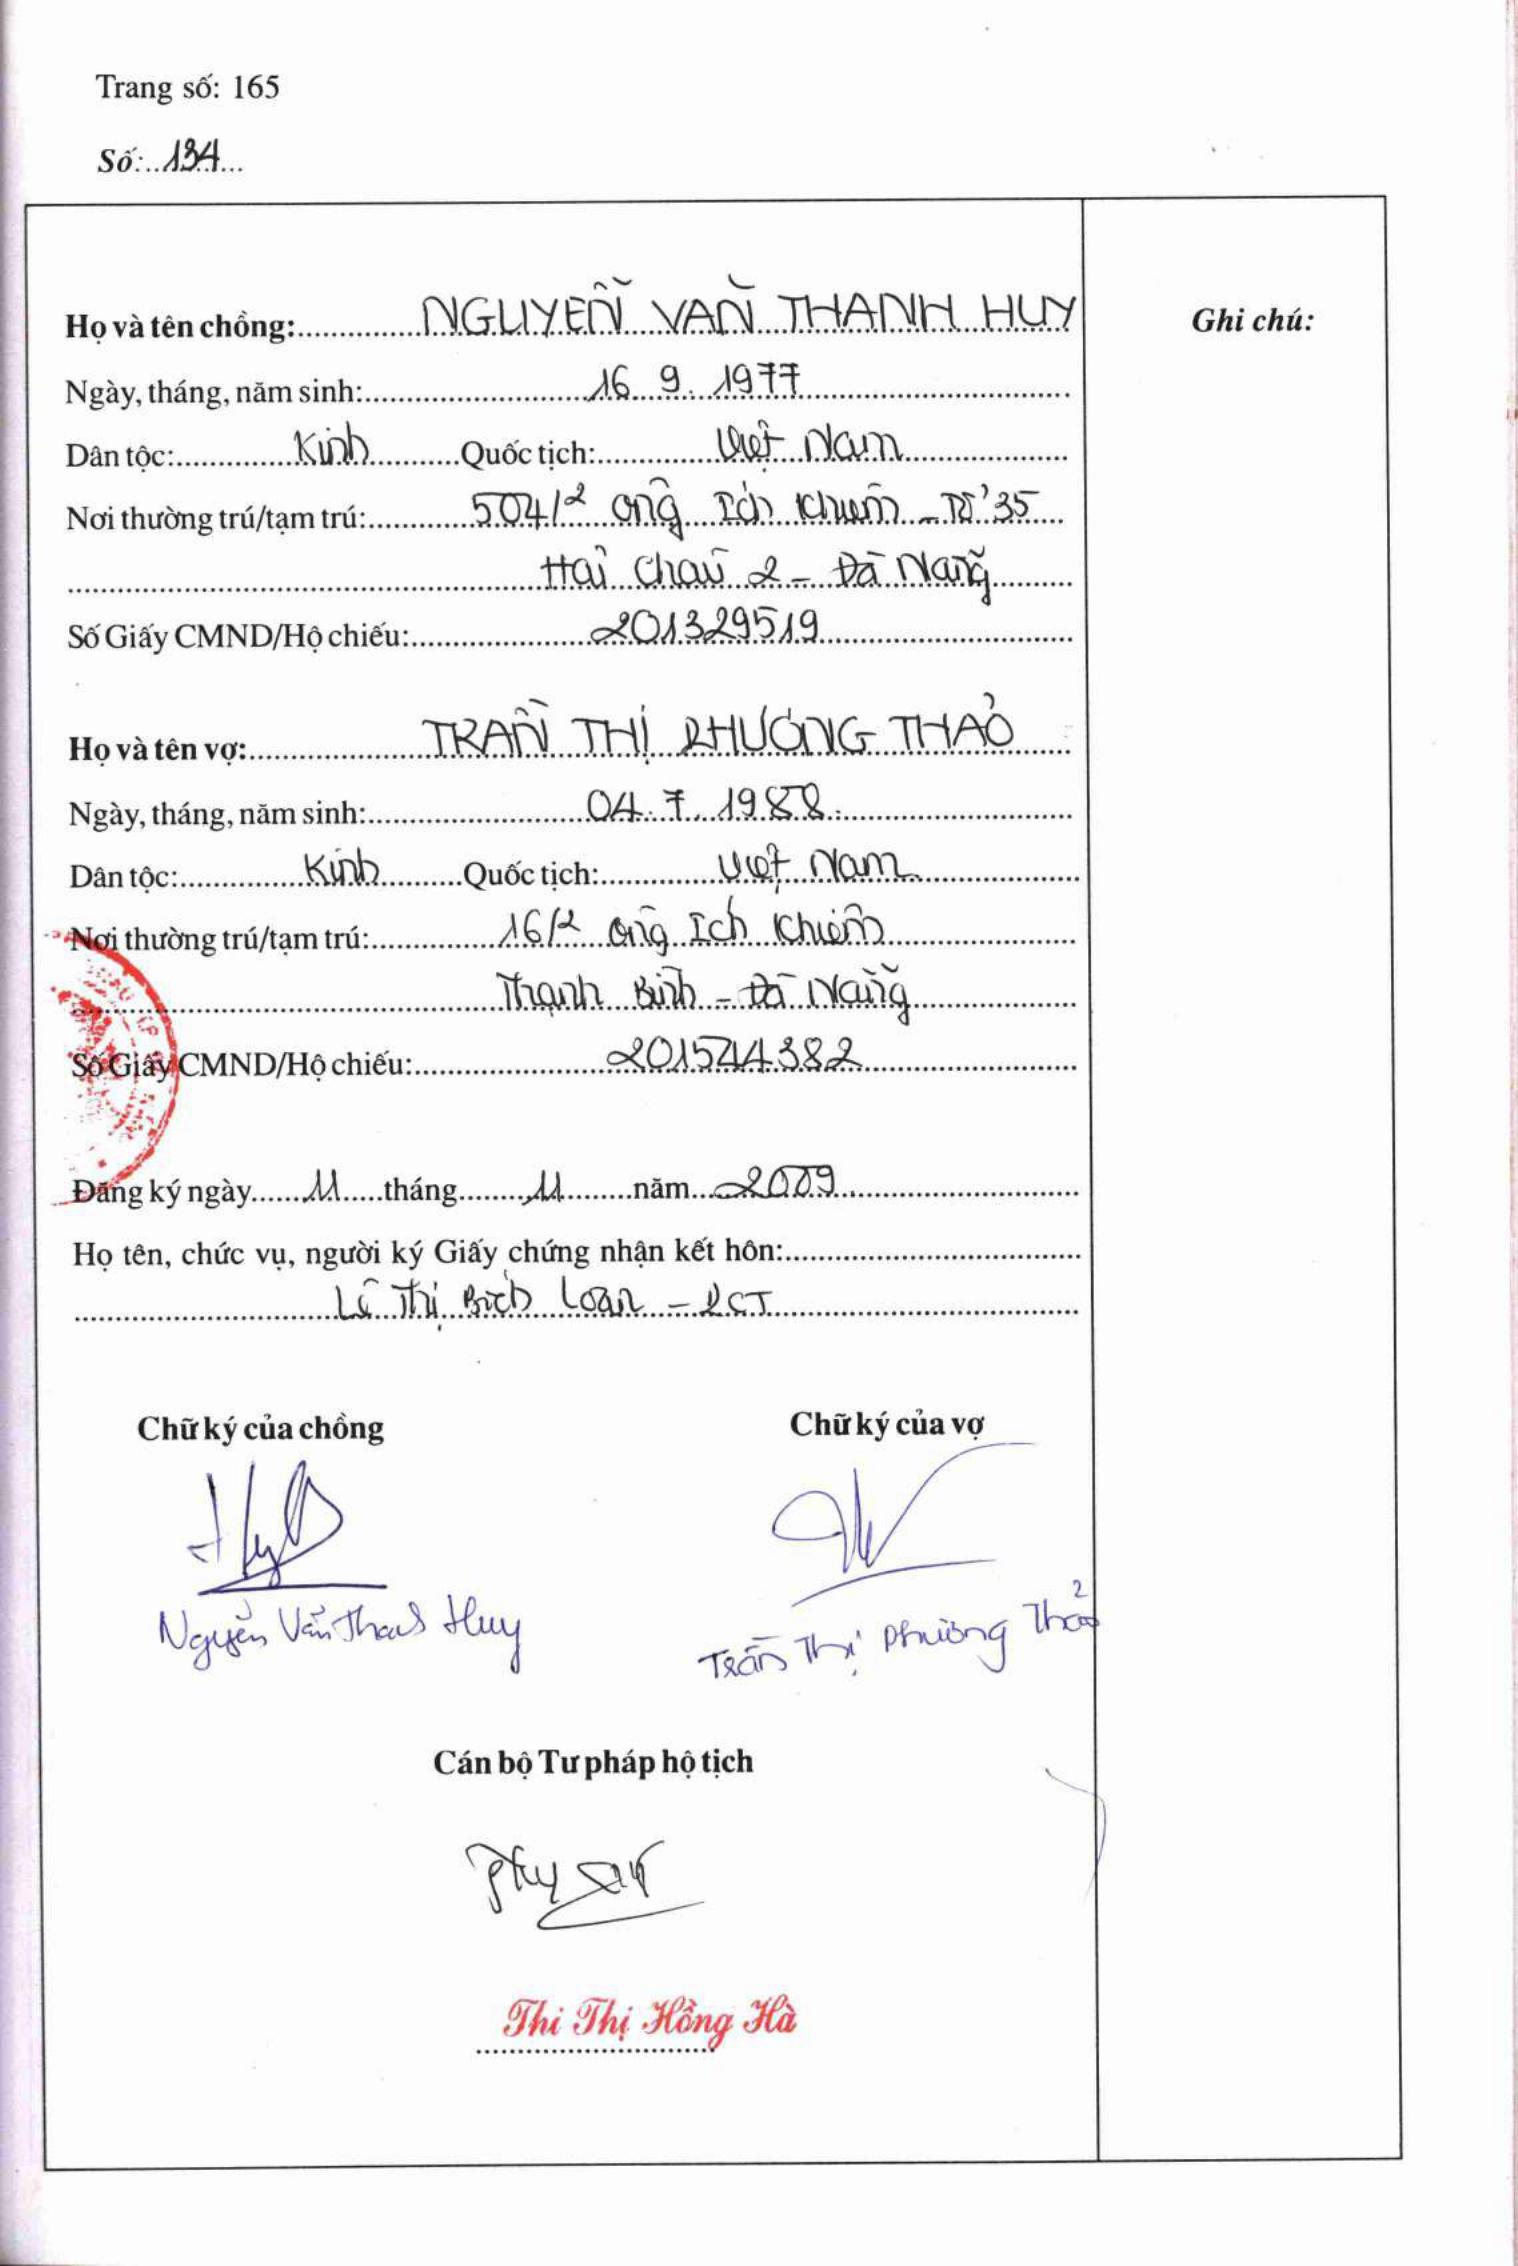 Trang số: 165
Số: 134
Họ và tên chồng: NGUYỄN VĂN THANH HUY
Ghi chú:
Ngày, tháng, năm sinh: 16.9.1977
Dân tộc: Kinh Quốc tịch: Việt Nam
Nơi thường trú/tạm trú: 504/2 Ông Ích Khiêm - Tổ 35
Hải Châu 2 - Đà Nẵng
Số Giấy CMND/Hộ chiếu: 201329519
Họ và tên vợ: TRẦN THỊ PHƯƠNG THẢO
Ngày, tháng, năm sinh: 04.7.1988
Dân tộc: Kinh Quốc tịch: Việt Nam
Nơi thường trú/tạm trú: 16/2 Ông Ích Khiêm
Thanh Bình - Đà Nẵng
Số Giấy CMND/Hộ chiếu: 201544382
Đăng ký ngày 11 tháng 11 năm 2009
Họ tên, chức vụ, người ký Giấy chứng nhận kết hôn:
Lê Thị Bích Loan - PCT
Chữ ký của chồng
Chữ ký của vợ
Nguyễn Văn Thanh Huy
Trần Thị Phương Thảo
Cán bộ Tư pháp hộ tịch
Thi Thị Hồng Hà